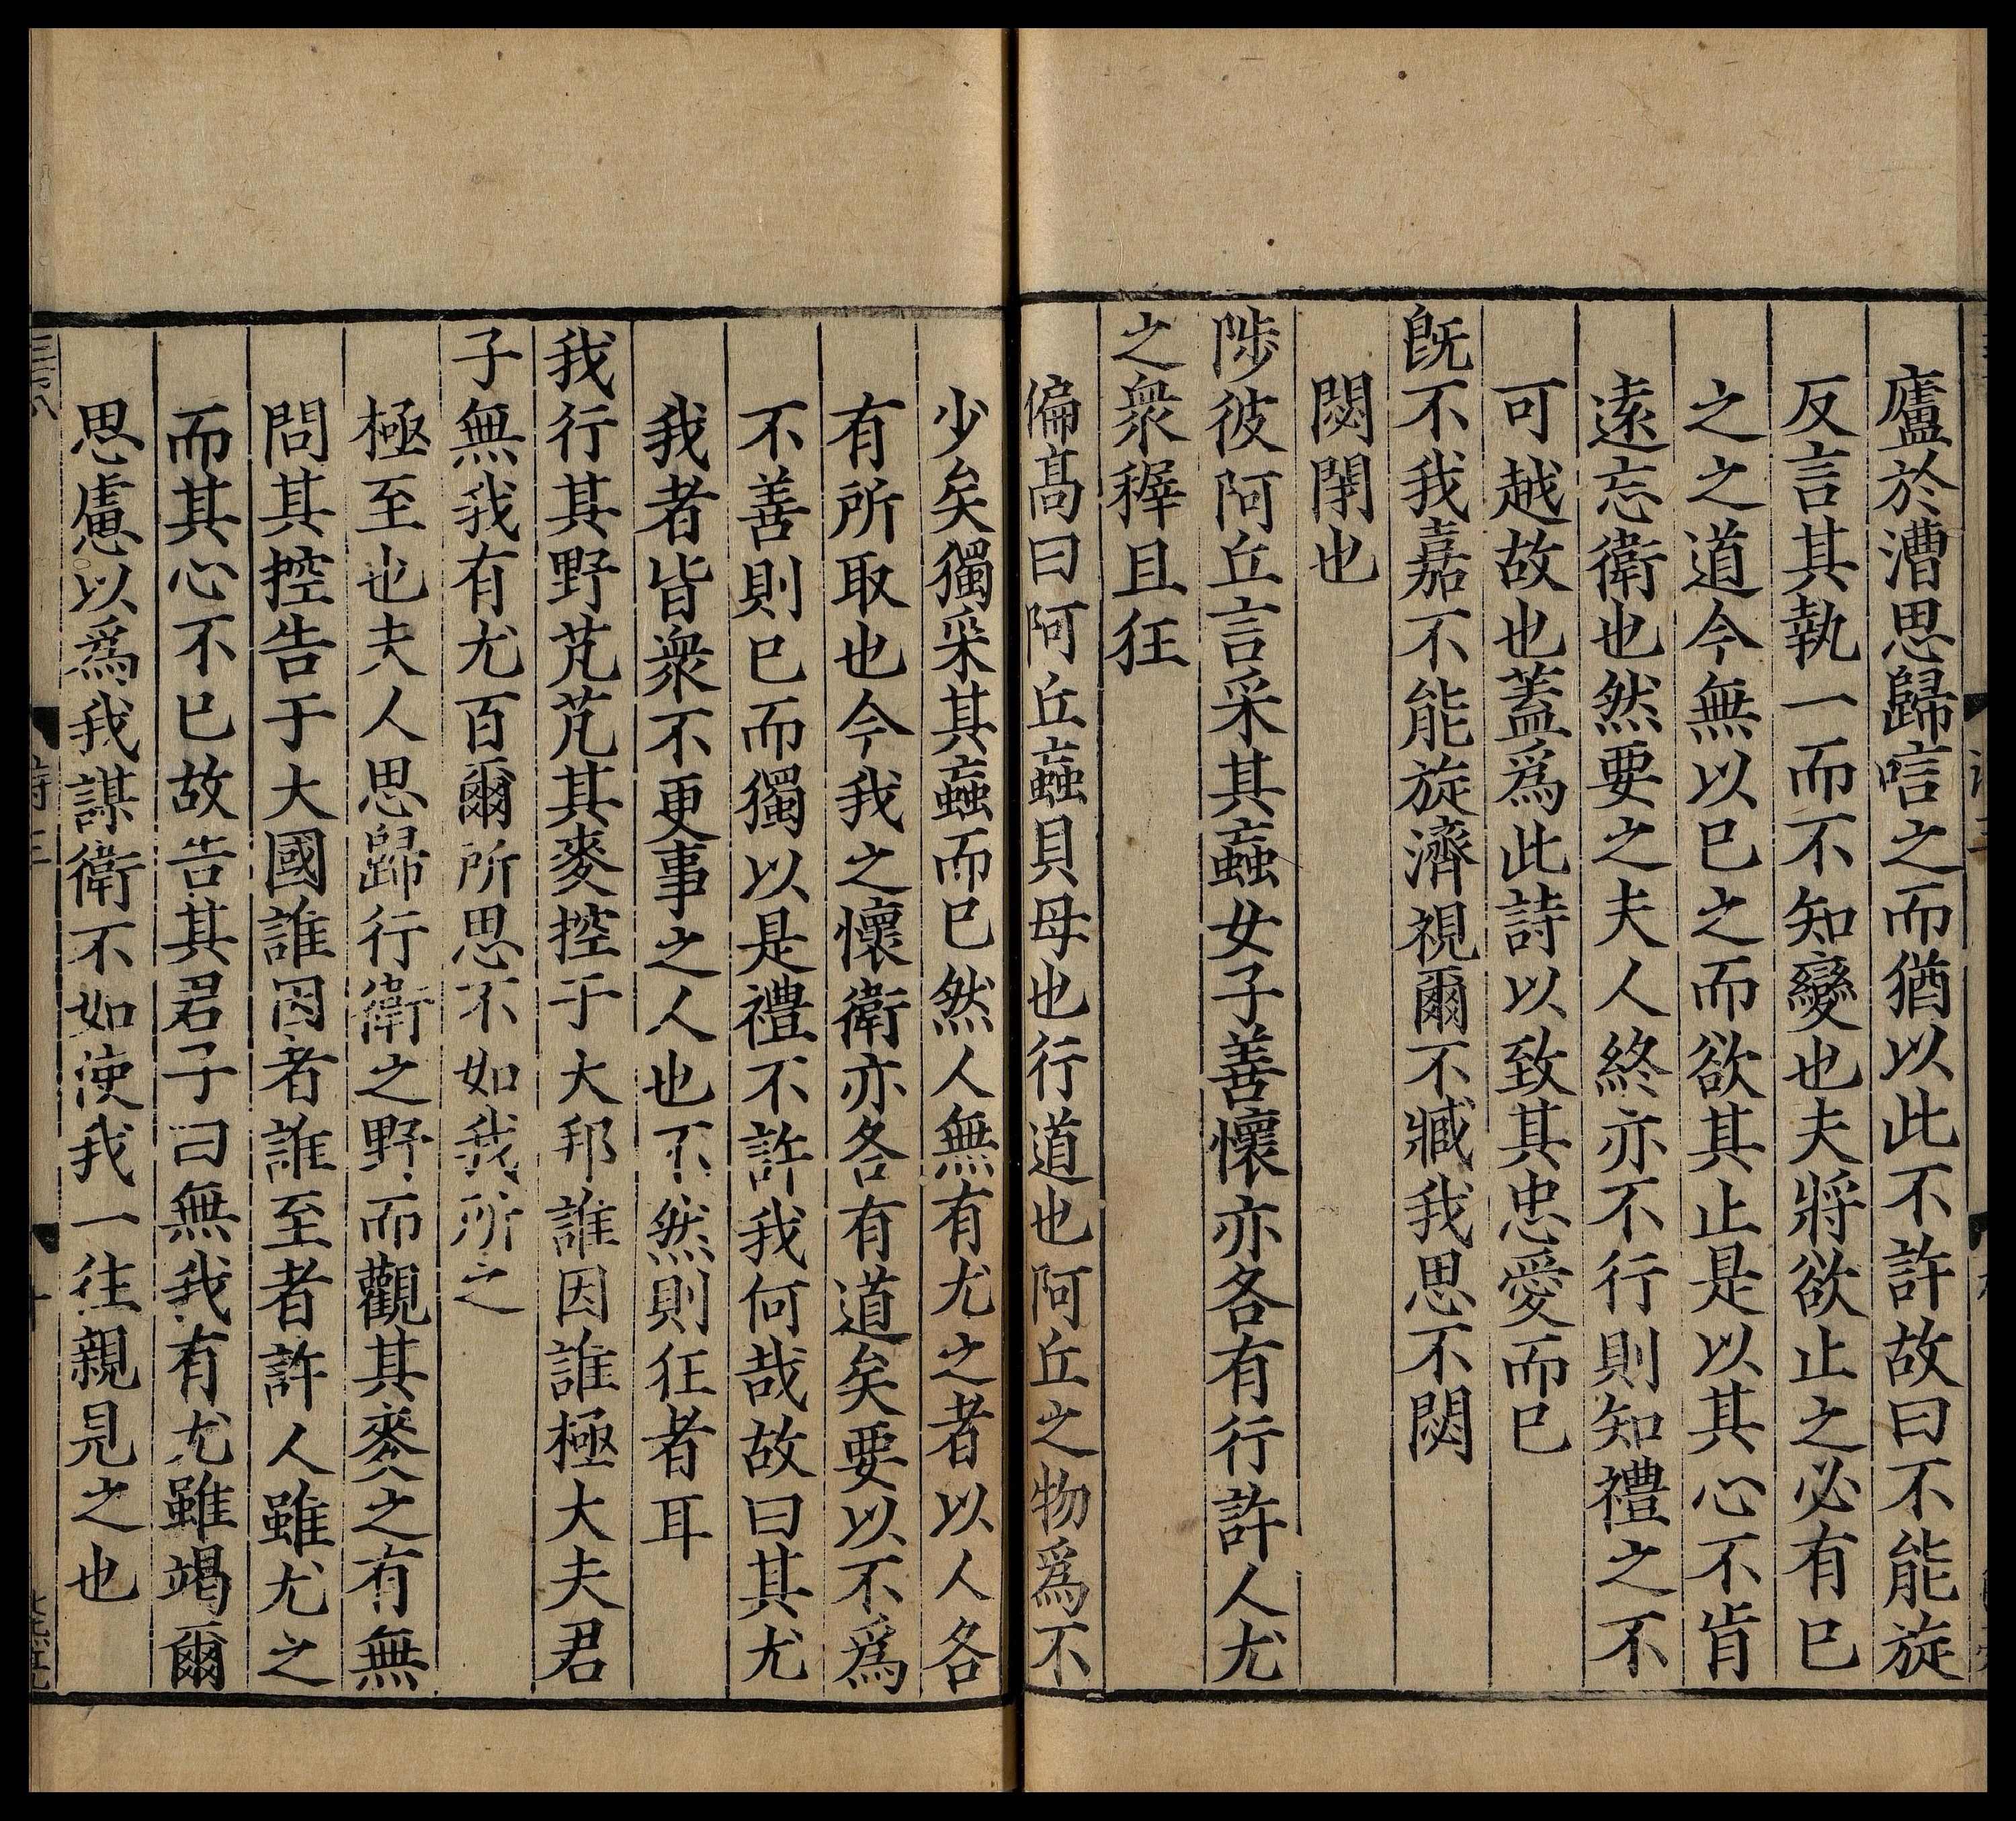 廬於漕思歸唁之而猶以此不許故曰不能旋
反言其執一而不知變也夫將欲止之必有已
之之道今無以已之而欲其止是以其心不肯
遠忘衛也然要之夫人終亦不行則知禮之不
可越故也蓋為此詩以致其忠愛而已
旣不我嘉不能旋濟視爾不臧我思不閟
閟閉也
陟彼阿丘言采其蝱女子善懷亦各有行許人尤
之衆穉且狂
偏高曰阿丘蝱貝母也行道也阿丘之物為不
少矣獨采其蝱而已然人無有尤之者以人各
有所取也今我之懷衛亦各有道矣要以不為
不善則已而獨以是禮不許我何哉故曰其尤
我者皆衆不更事之人也不然則狂者耳
我行其野芃芃其麥控于大邦誰因誰極大夫君
子無我有尤百爾所思不如我所之
極至也夫人思歸行衛之野而觀其麥之有無
問其控告于大國誰因者誰至者許人雖尤之
而其心不已故告其君子曰無我有尤雖竭爾
思慮以為我謀衛不如使我一往親見之也